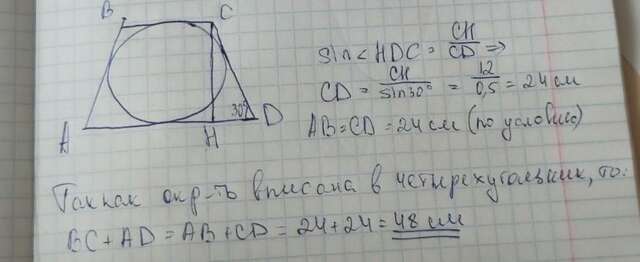 B C
sin∠HDC = CH/CD ⇒
CD = CH/sin30° = 12/0,5 = 24 см
30°
A H D
AB=CD=24см (по условию)
Так как окр-ть вписана в четырехугольник, то:
BC+AD=AB+CD=24+24=48 см